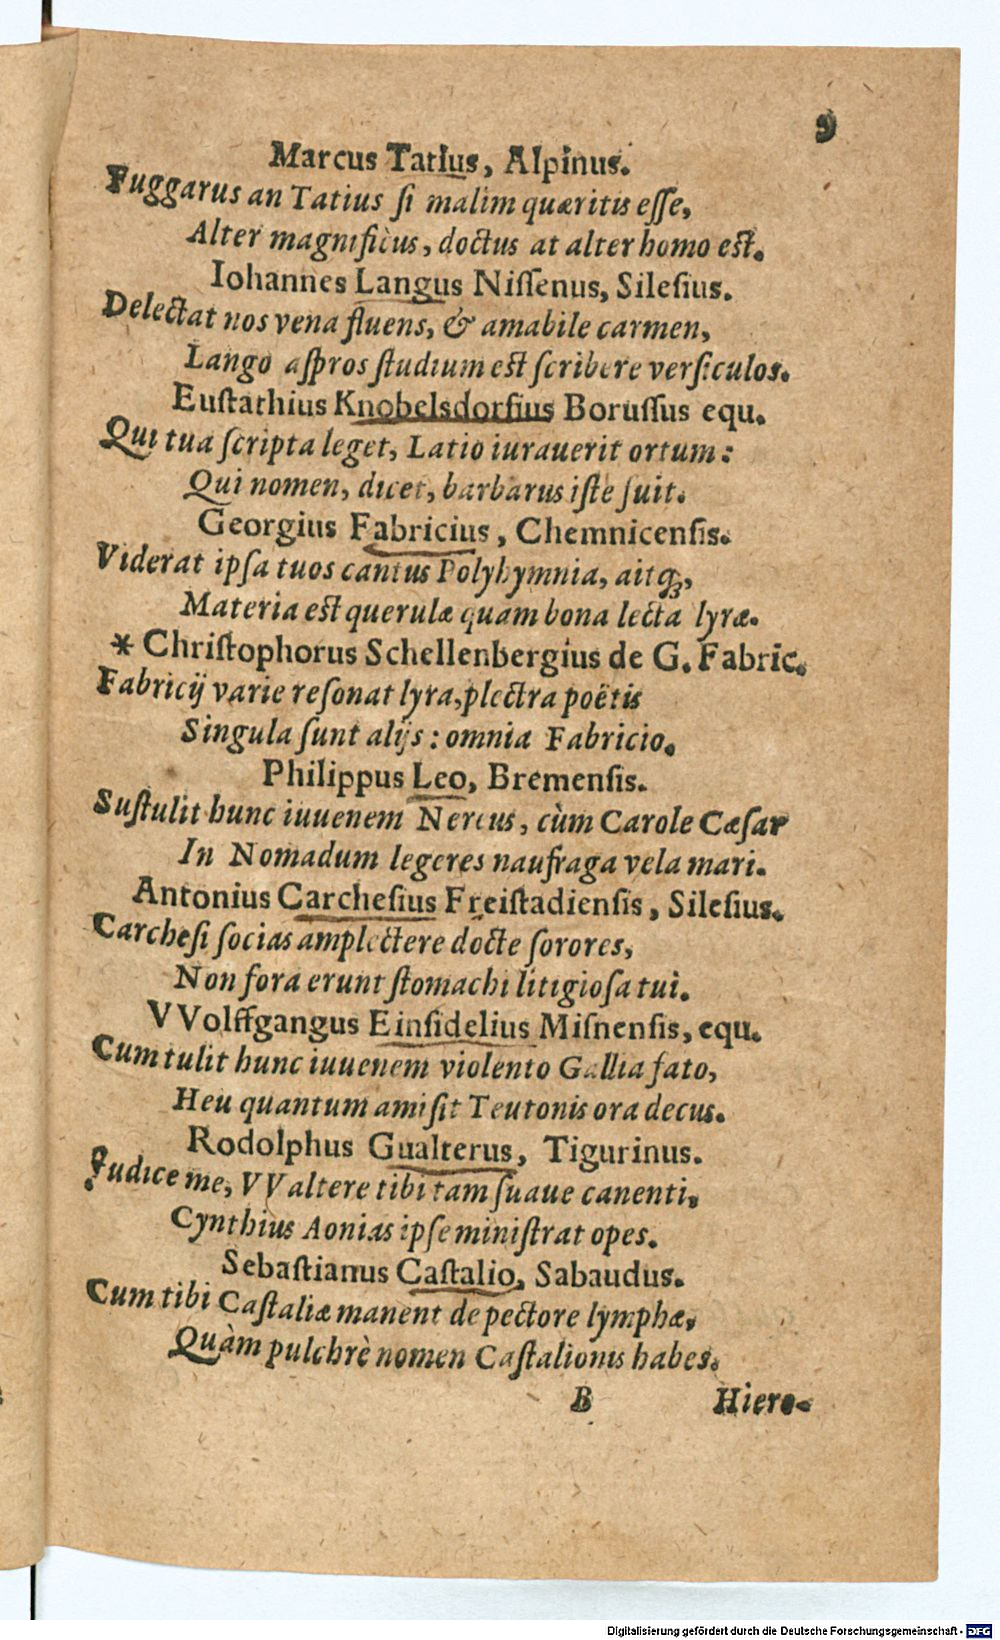 9
Marcus Tatius, Alpinus.
Fuggarus an Tatius ſi malim quæritis eſſe,
Alter magnificus, doctus at alter homo eſt.
Iohannes Langus Niſſenus, Sileſius.
Delectat nos vena fluens, & amabile carmen,
Lango aſpros ſtudium eſt ſcribere verſiculos.
Euſtathius Knobelsdorfius Boruſſus equ.
Qui tua ſcripta leget, Latio iurauerit ortum:
Qui nomen, dicet, barbarus iſte fuit.
Georgius Fabricius, Chemnicenſis.
Viderat ipſa tuos cantus Polyhymnia, aitq́;,
Materia eſt querulæ quam bona lecta lyræ.
* Chriſtophorus Schellenbergius de G. Fabric.
Fabricij varie reſonat lyra, plectra poëtis
Singula ſunt alijs: omnia Fabricio.
Philippus Leo, Bremenſis.
Suſtulit hunc iuuenem Nereus, cùm Carole Cæſar
In Nomadum legeres naufraga vela mari.
Antonius Carcheſius Freiſtadienſis, Sileſius.
Carcheſi ſocias amplectere docte ſorores,
Non fora erunt ſtomachi litigioſa tui.
VVolffgangus Einſidelius Miſnenſis, equ.
Cum tulit hunc iuuenem violento Gallia fato,
Heu quantum amiſit Teutonis ora decus.
Rodolphus Gualterus, Tigurinus.
Judice me, VValtere tibi tam ſuaue canenti,
Cynthius Aonias ipſe miniſtrat opes.
Sebaſtianus Caſtalio, Sabaudus.
Cum tibi Caſtaliæ manent de pectore lymphæ,
Quàm pulchrè nomen Caſtalionis habes.
B Hiero-
Digitalisierung gefördert durch die Deutsche Forschungsgemeinschaft - DFG